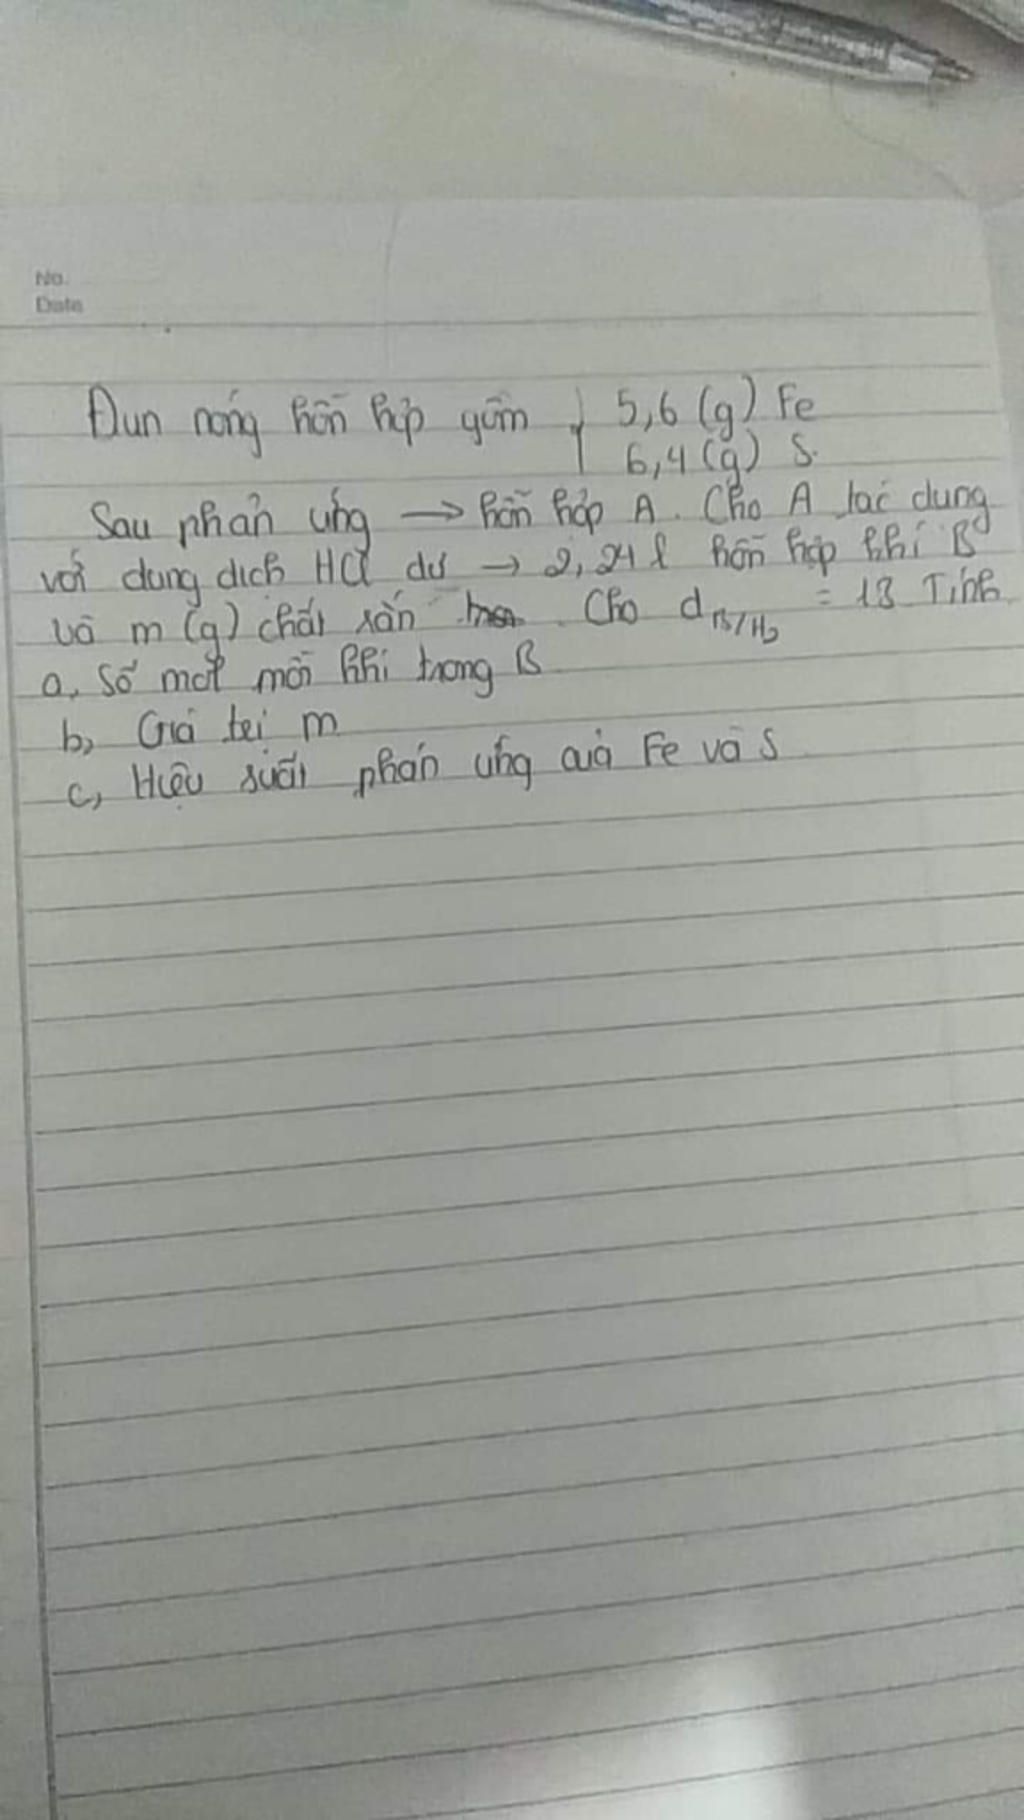 No.
Date
Đun nóng hỗn hợp gồm { 5,6 (g) Fe
6,4 (g) S.
Sau phản ứng → hỗn hợp A. Cho A tác dụng
với dung dịch HCl dư → 2,24 l hỗn hợp khí B
và m (g) chất rắn. Cho d B/H2 = 13 Tính
a, Số mol mỗi khí trong B
b, Giá trị m
c, Hiệu suất phản ứng của Fe và S